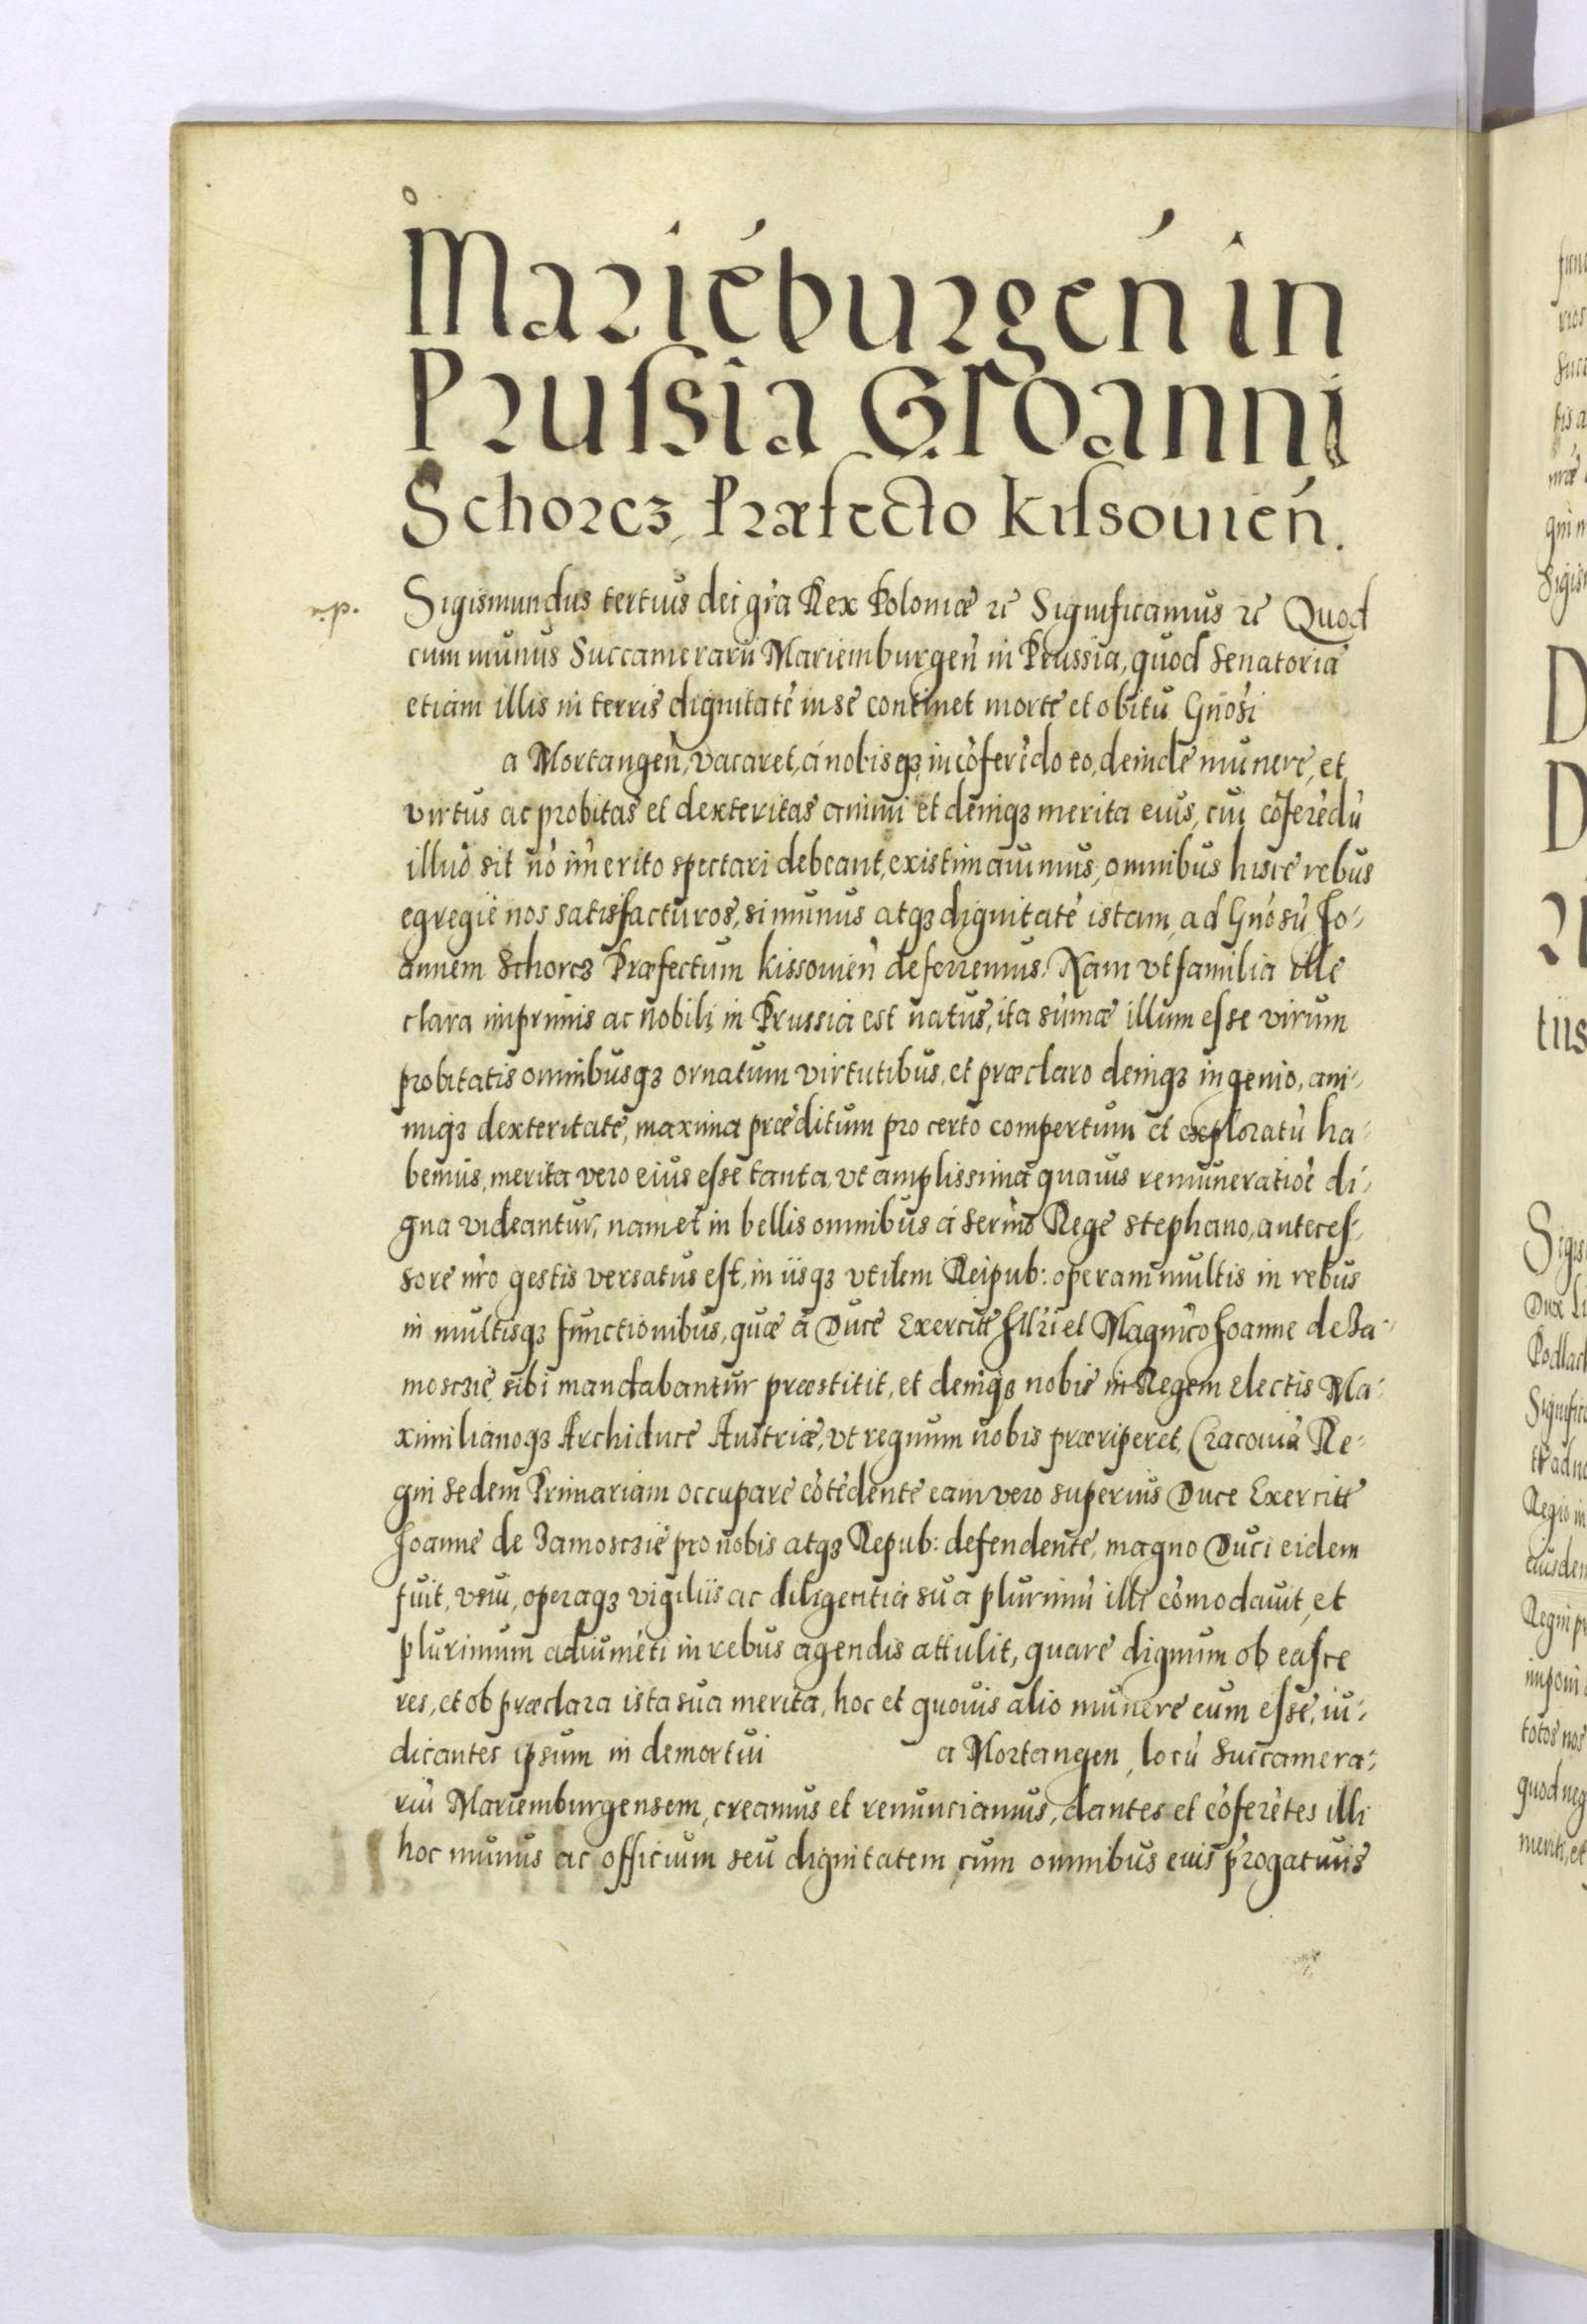 Mariẽburgeñ in
Prussia G. Ioanni
Schorcz, Præfecto Kissouieñ.
Sigismundus tertius dei gr̃a Rex Poloniæ ꝛc̃ Significamus ꝛc̃ Quod
cum munus Succamerarii Mariemburgeñ in Prussia, quod Senatoriã
etiam illis in terris dignitatẽ in se continet morte et obitu Gñosi
a Mortangeñ, vacaret, a nobisqꝫ in cõferẽdo eo, deinde munere, et
virtus ac probitas et dexteritas animi et deniqꝫ merita eius, cui cõferẽdũ
illud sit nõ im̃erito spectari debeant, existimauimus, omnibus hisce rebus
egregie nos satisfacturos, si munus atqꝫ dignitatẽ istam, ad Gñosũ Jo-
annem Schorcz Præfectum Kissouieñ deferremus. Nam vt familia ille
clara imprimis ac nobili, in Prussia est natus, ita sum̃æ illum esse virum
probitatis omnibusqꝫ ornatum virtutibus, et præclaro deniqꝫ ingenio, ani-
miqꝫ dexteritate, maxima præditum pro certo compertum et exploratũ ha-
bemus, merita vero eius esse tanta, vt amplissima quauis remuneratiõe di-
gna videantur, nam et in bellis omnibus á Serm̃o Rege Stephano, anteces-
sore nr̃o gestis versatus est, in iisqꝫ vtilem Reipub: operam multis in rebus
in multisqꝫ functionibus, quæ á Duce Exercitũ Jllr̃i et Magnico Joanne de Za-
mosczie sibi mandabantur præstitit, et deniqꝫ nobis in Regem electis Ma-
ximilianoqꝫ Archiduce Austriæ, vt regnum nobis præriperet, Cracouiã Re-
gni sedem Primariam occupare cõtẽdente eam vero superius Duce Exercitũ
Joanne de Zamosczie pro nobis atqꝫ Repub: defendente, magno Duci eidem
fuit, vsui, operaqꝫ vigiliis ac diligentia sua plurimũ illi cõmodauit, et
plurimum adiumẽti in rebus agendis attulit, quare dignum ob easce
res, et ob præclara ista sua merita, hoc et quouis alio munere eum esse, iu-
dicantes ipsum in demortui a Mortangen, locũ Succamera-
riũ Mariemburgensem, creamus et renunciamus, dantes et cõferẽtes illi
hoc munus ac officium seu dignitatem, cum omnibus euis p̃rogatiuis